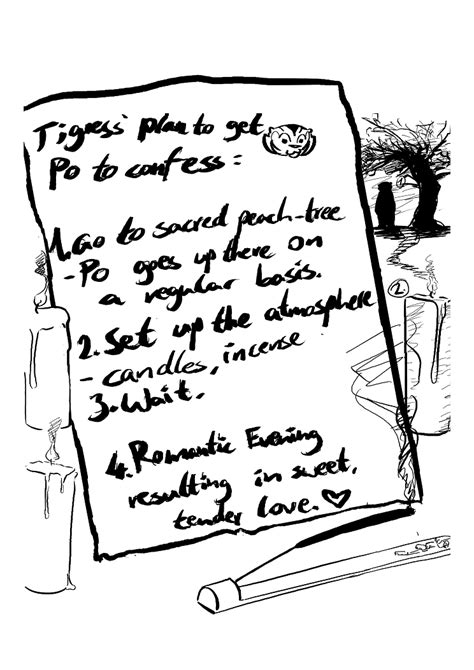 Tigress' plan to get
Po to confess:
1. Go to sacred peach-tree
- Po goes up there on
a regular basis.
2. Set up the atmosphere
- candles, incense
3. Wait.
4. Romantic Evening
resulting in sweet,
tender love.
2